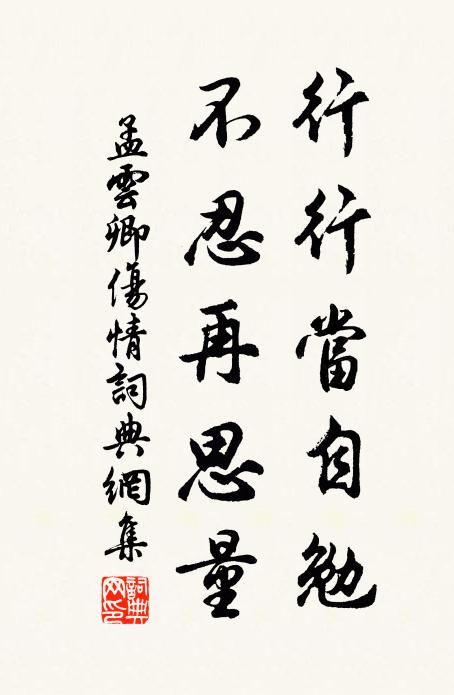 行行當自勉
不忍再思量
孟雲卿傷情詞典網集
詞典網印